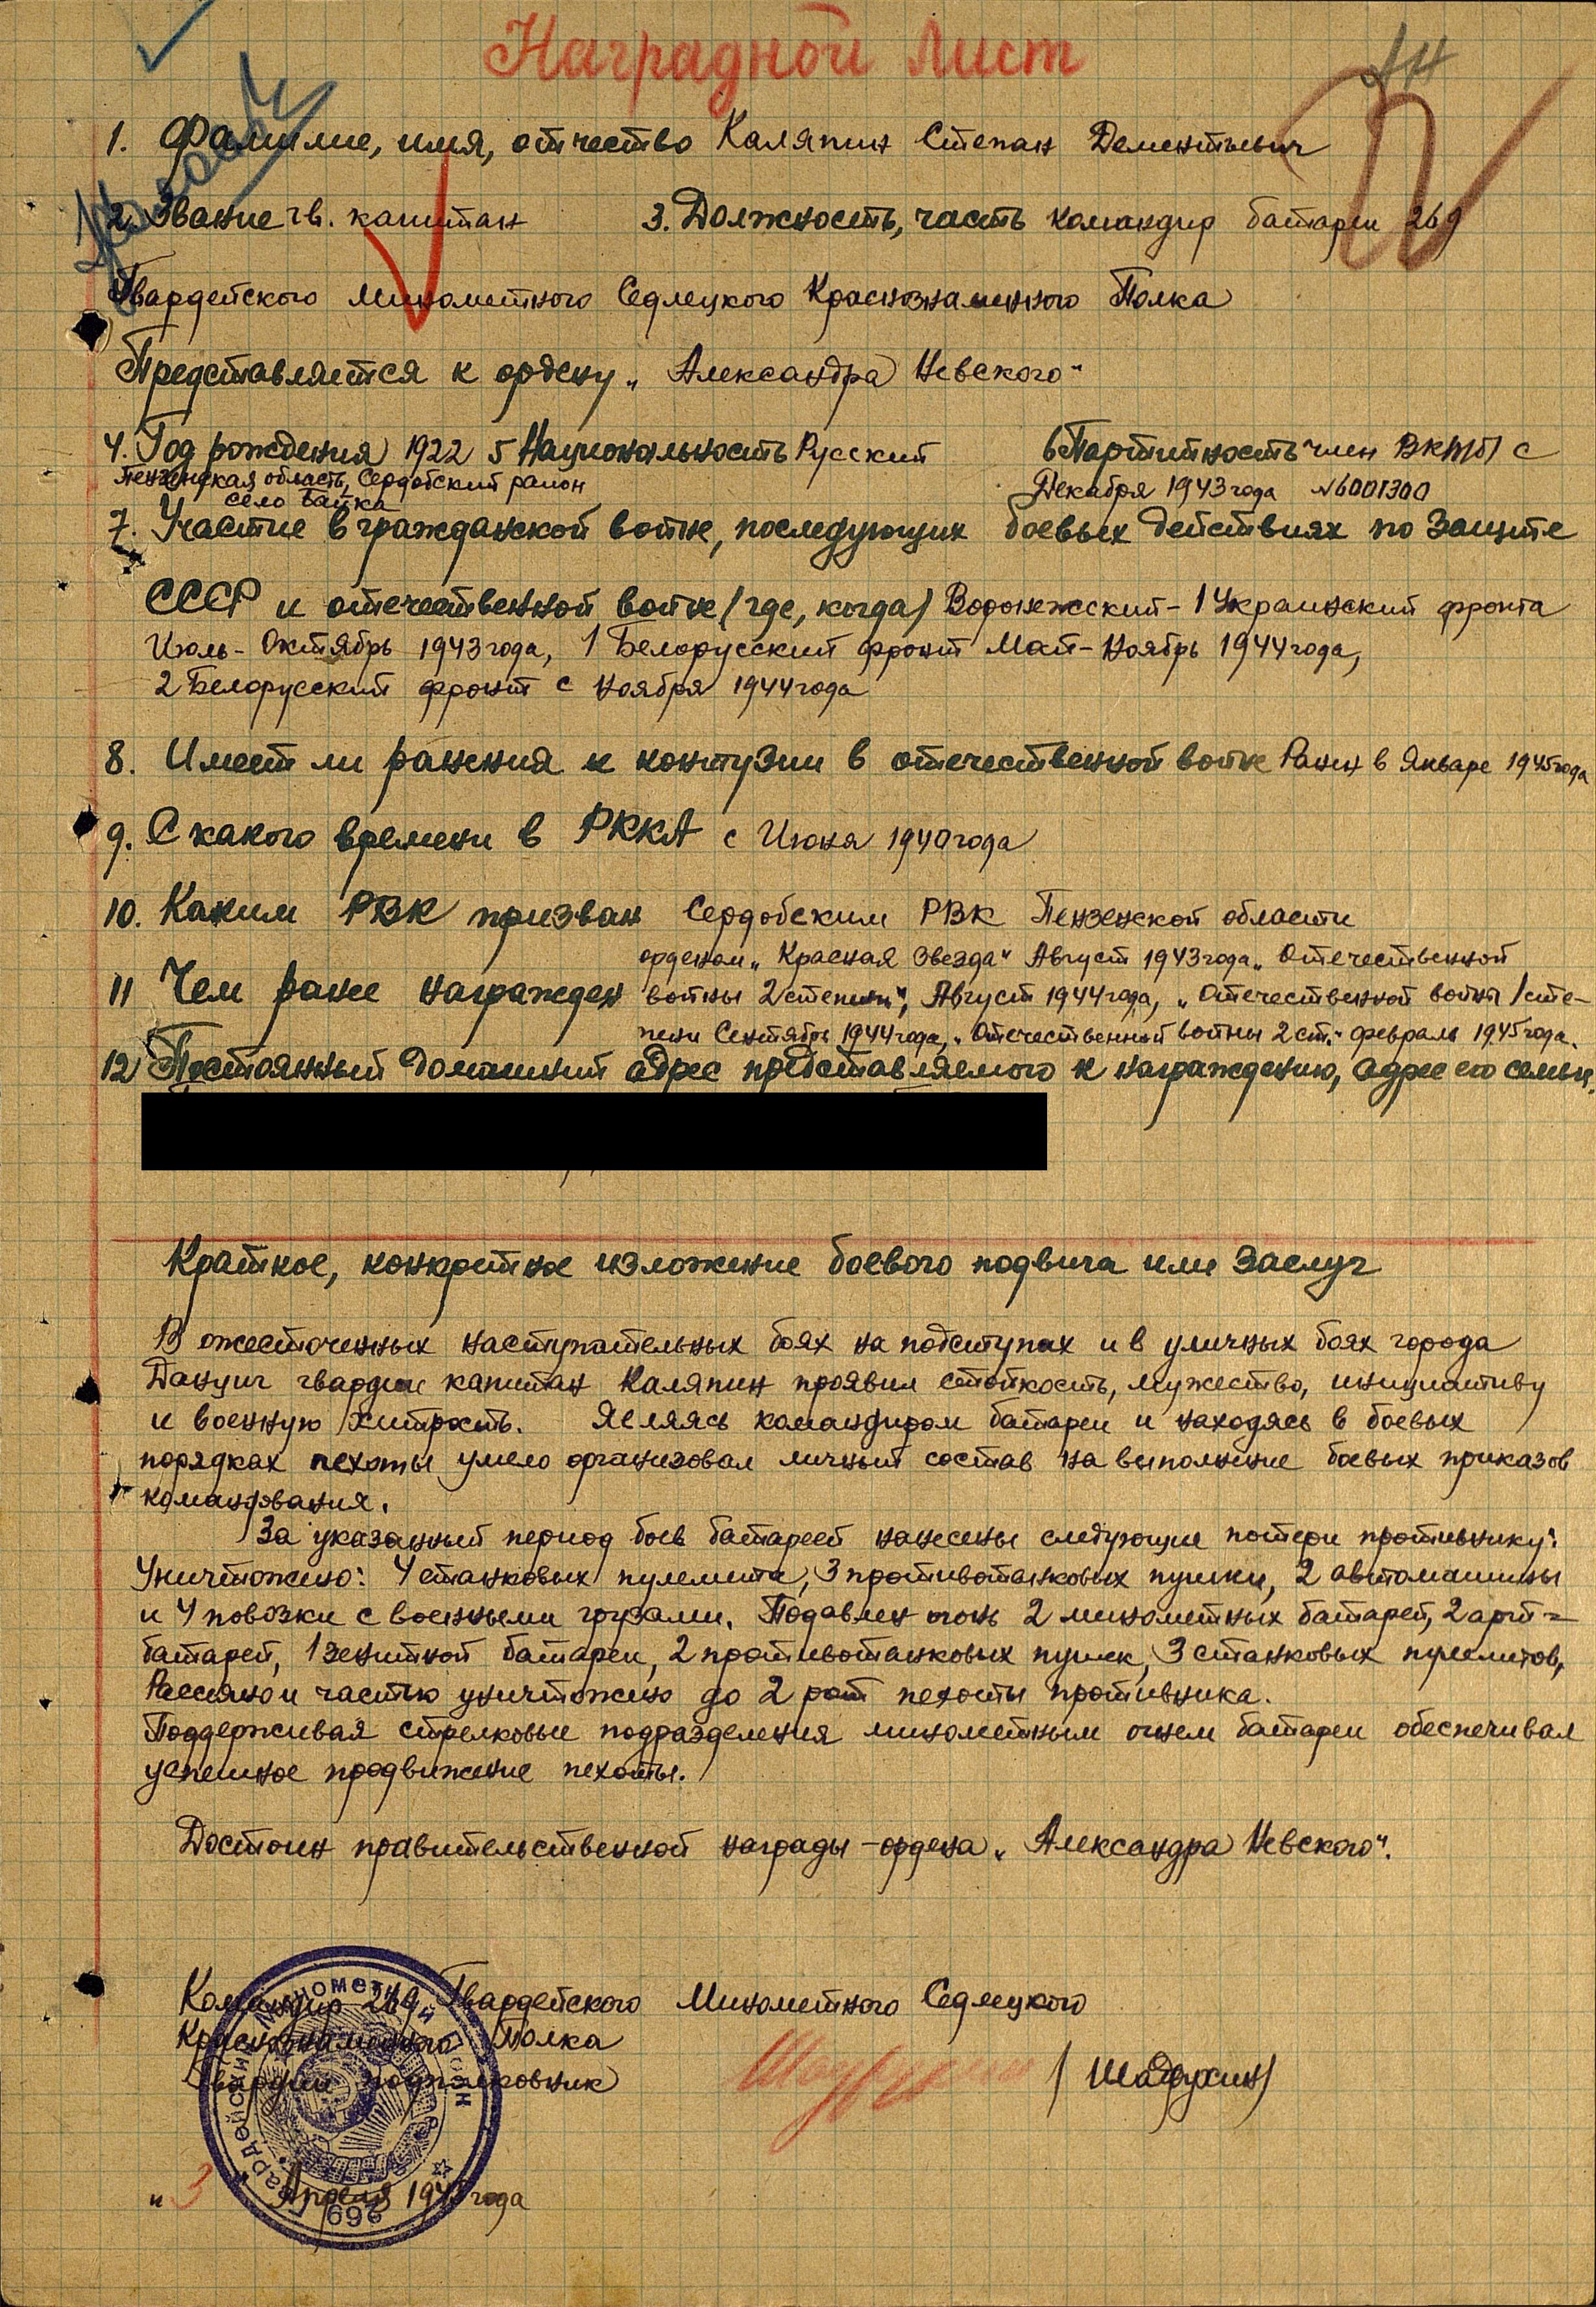 Наградной Лист
1. Фамилие, имя, отчество Каляпин Степан Дементьевич
2. Звание гв. капитан 3. Должность, часть командир батареи 269
Гвардейского Минометного Седлецкого Краснознаменного Полка
Представляется к ордену „Александра Невского"
4. Год рождения 1922 5 Национальность Русский 6 Партийность член ВКП/б/ с
Пензенская область, Сердобский район Декабря 1943 года №6001300
село Байка
7. Участие в гражданской войне, последующих боевых действиях по защите
СССР и отечественной войне /где, когда/ Воронежский - 1 Украинский фронта
Июль - Октябрь 1943 года, 1 Белорусский фронт Май - Ноябрь 1944 года,
2 Белорусский фронт с ноября 1944 года
8. Имеет ли ранения и контузии в отечественной войне Ранен в Январе 1945 года
9. С какого времени в РККА с Июня 1940 года
10. Каким РВК призван Сердобским РВК Пензенской области
орденом „Красная Звезда" Август 1943 года „Отечественной
11 Чем ранее награжден войны 2 степени", Август 1944 года, „Отечественной войны 1 сте-
пени Сентябрь 1944 года, „Отечественной войны 2 ст." февраль 1945 года.
12 Постоянный домашний адрес представляемого к награждению, адрес его семьи.
Краткое, конкретное изложение боевого подвига или заслуг
В ожесточенных наступательных боях на подступах и в уличных боях города
Данциг гвардии капитан Каляпин проявил стойкость, мужество, инициативу
и военную хитрость. Являясь командиром батареи и находясь в боевых
порядках пехоты умело организовал личный состав на выполнение боевых приказов
командования.
За указанный период боев батареей нанесены следующие потери противнику:
Уничтожено: 4 станковых пулемета, 3 противотанковых пушки, 2 автомашины
и 4 повозки с военными грузами. Подавлен огонь 2 минометных батарей, 2 арт=
батарей, 1 зенитной батареи, 2 противотанковых пушек, 3 станковых пулеметов,
Рассеяно и частью уничтожено до 2 рот пехоты противника.
Поддерживая стрелковые подразделения минометным огнем батареи обеспечивал
успешное продвижение пехоты.
Достоин правительственной награды - ордена „Александра Невского".
Командир 269 Гвардейского Минометного Седлецкого
Краснознаменного Полка
Гвардии подполковник /Шадрухин/
„3 Апреля 1945 года
269 Гвардейский Минометный Полк